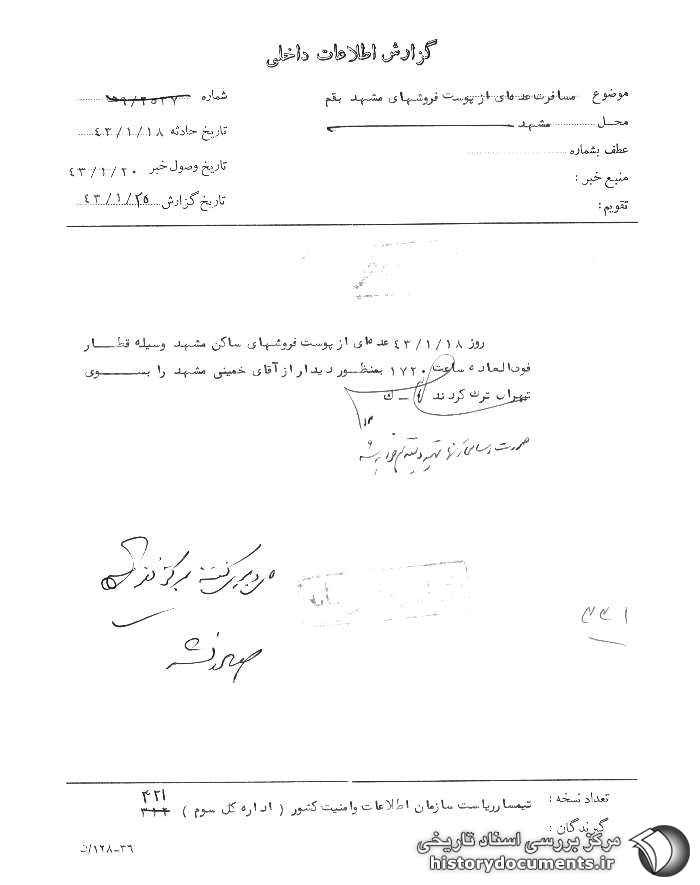 گزارش اطلاعات داخلی
موضوع مسافرت عده‌ای از پوست فروشهای مشهد بقم
شماره ۹/۲۵۲۷
محل مشهد
تاریخ حادثه ۴۳/۱/۱۸
عطف بشماره
تاریخ وصول خبر ۴۳/۱/۲۰
منبع خبر :
تاریخ گزارش ۴۳/۱/۲۵
تقویم :
روز ۴۳/۱/۱۸ عده‌ای از پوست فروشهای ساکن مشهد وسیله قطار
فوق‌العاده ساعت ۱۷۲۰ بمنظور دیدار از آقای خمینی مشهد را بسوی
تهران ترک کردند
۴۲۱
تعداد نسخه :
تیمسار ریاست سازمان اطلاعات وامنیت کشور ( اداره کل سوم ) ۳۱۲
گیرندگان :
۱۲۸-۳۶/ن
مرکز بررسی اسناد تاریخی
historydocuments.ir